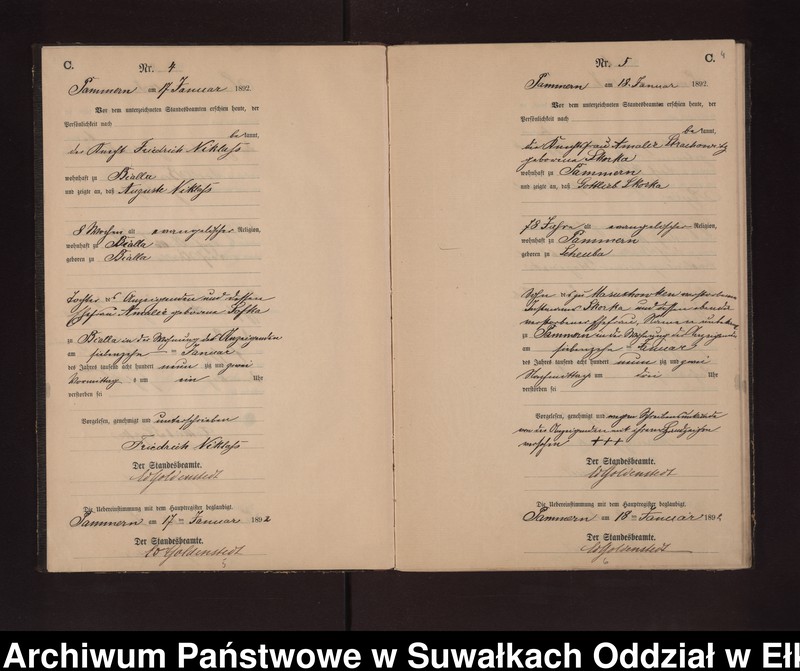 C.
Nr. 4
Sammern am 17 Januar 1892.
Vor dem unterzeichneten Standesbeamten erschien heute, der
Persönlichkeit nach
be kannt,
der Knecht Friedrich Niklass
wohnhaft zu Bialla
und zeigte an, daß Auguste Niklass
8 Wochen alt evangelischer Religion,
wohnhaft zu Bialla
geboren zu Bialla
Tochter des Anzeigenden und dessen
Ehefrau Amalie geborene
zu Bialla in der Wohnung des Anzeigenden
am siebenzehn ten Januar
des Jahres tausend acht hundert neun zig und zwei
Vormittags um ein Uhr
verstorben sei
Vorgelesen, genehmigt und unterschrieben
Friedrich Niklass
Der Standesbeamte.
Goldenstedt
Die Uebereinstimmung mit dem Hauptregister beglaubigt.
Sammern am 17 ten Januar 1892
Der Standesbeamte.
Goldenstedt
C.
4
Nr. 5
Sammern am 18. Januar 1892.
Vor dem unterzeichneten Standesbeamten erschien heute, der
Persönlichkeit nach
be kannt,
die Knechtsfrau Amalie
geborene Skorka
wohnhaft zu Sammern
und zeigte an, daß Gottlieb Skorka
78 Jahre alt evangelischer Religion,
wohnhaft zu Sammern
geboren zu
Sohn des zu verstorbenen
Instmanns Skorka und dessen ebenda
verstorbener Ehefrau, Namen unbekannt
zu Sammern in der Wohnung der Anzeigenden
am siebenzehn ten Januar
des Jahres tausend acht hundert neun zig und zwei
Nachmittags um drei Uhr
verstorben sei
Vorgelesen, genehmigt und wegen Schreibensunkunde
von der Anzeigenden mit ihrem Handzeichen
versehen +++
Der Standesbeamte.
Goldenstedt
Die Uebereinstimmung mit dem Hauptregister beglaubigt.
Sammern am 18 ten Januar 1892
Der Standesbeamte.
Goldenstedt
Archiwum Państwowe w Suwałkach Oddział w Eł